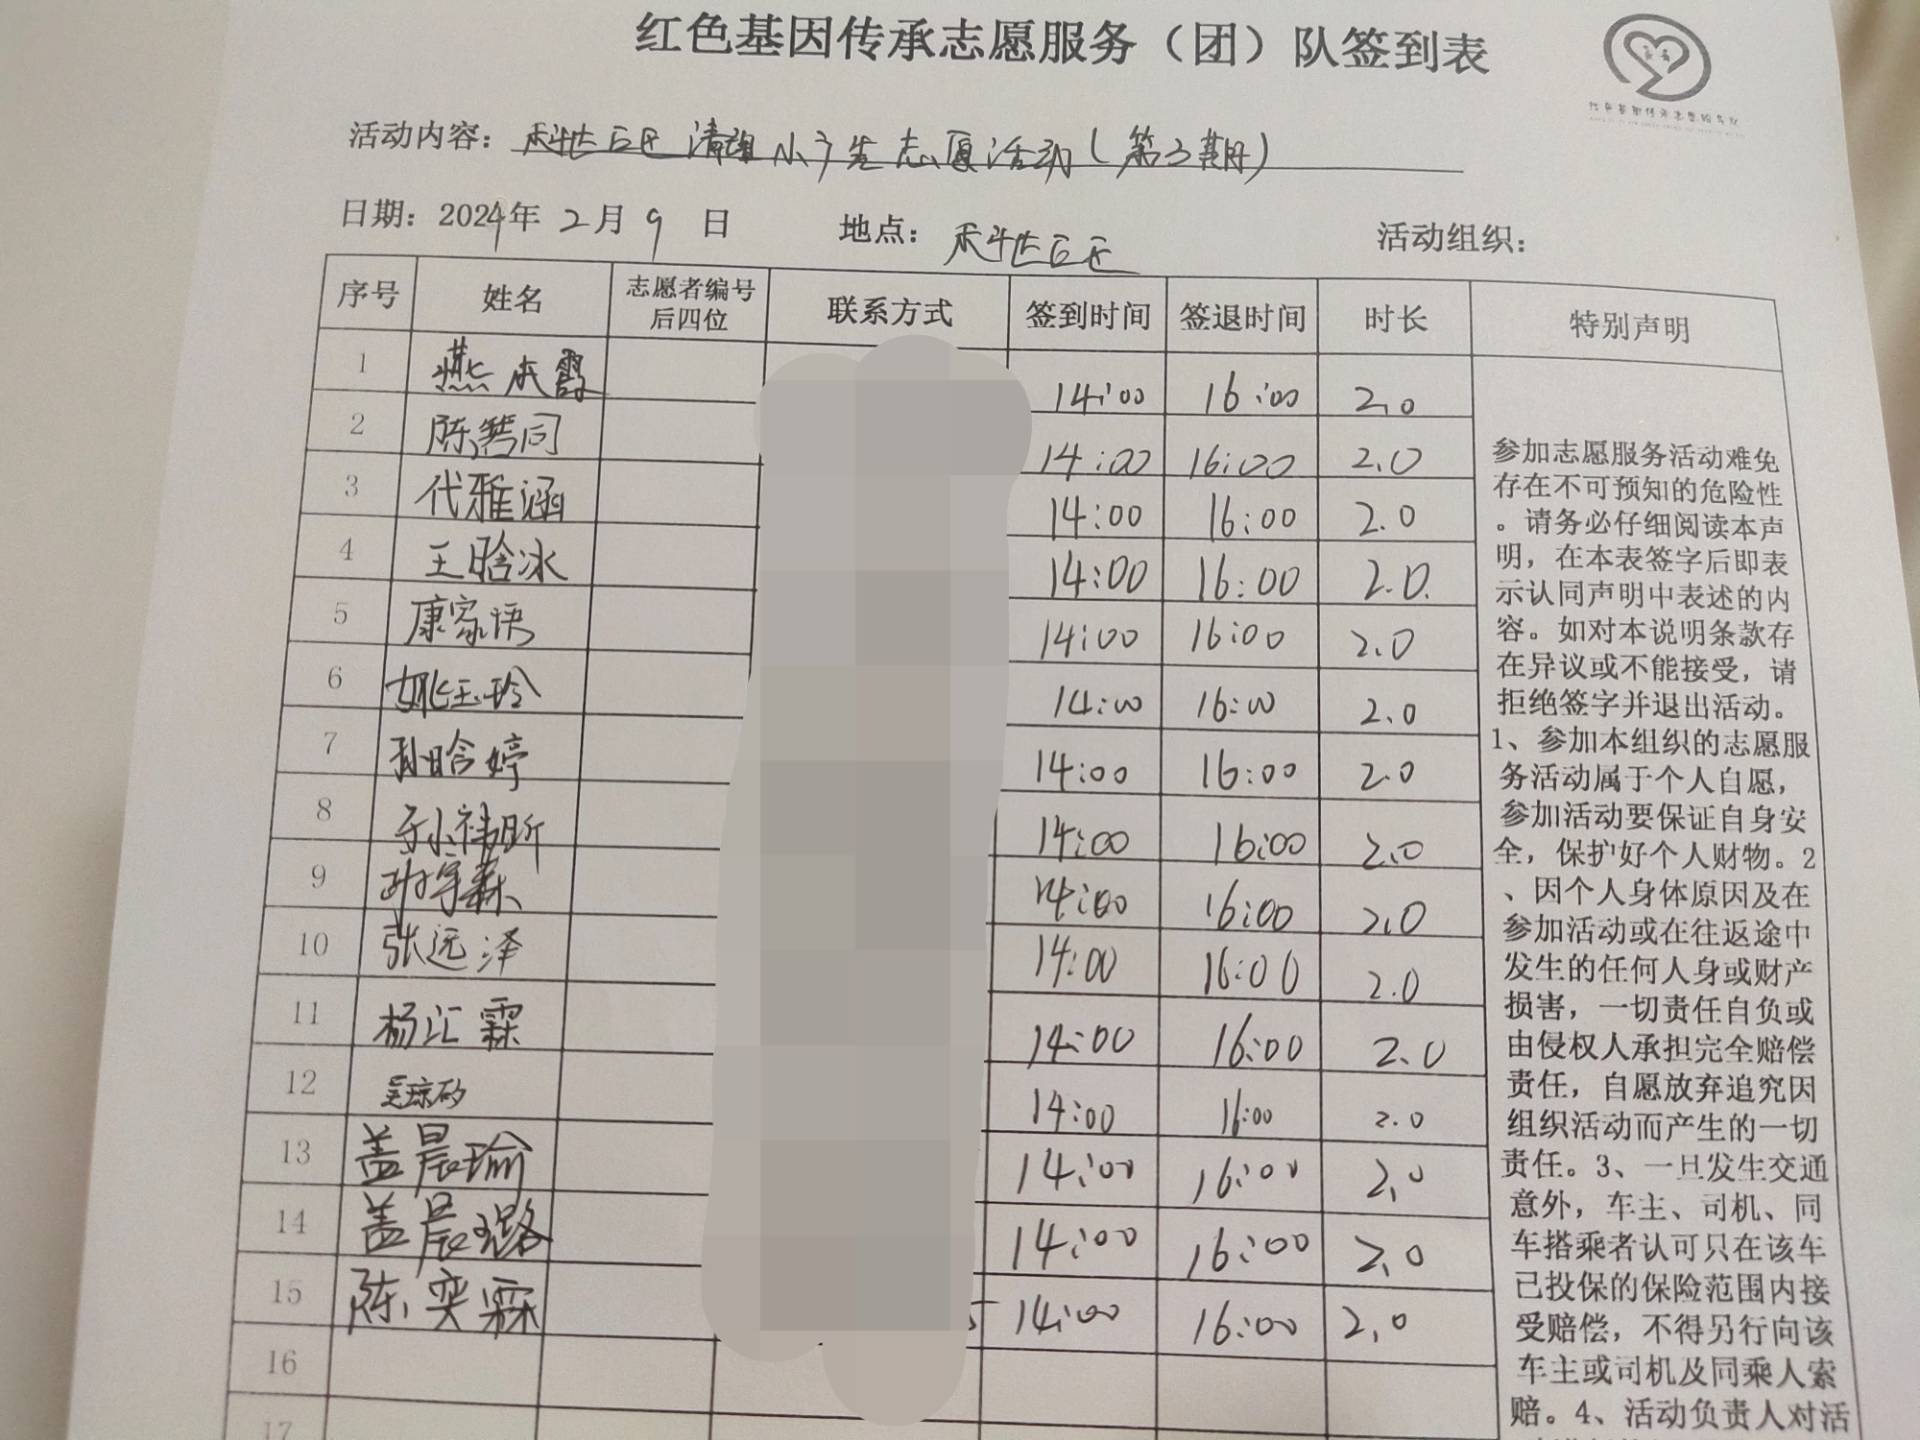 红色基因传承志愿服务（团）队签到表
活动内容：科苑社区清理小广告志愿活动（第3期）
日期：2024年2月9日 地点： 活动组织：
序号 姓名 志愿者编号后四位 联系方式 签到时间 签退时间 时长 特别声明
1 14:00 16:00 2.0
2 14:00 16:00 2.0
3 代雅涵 14:00 16:00 2.0
4 王晗冰 14:00 16:00 2.0
5 康家悟 14:00 16:00 2.0
6 姚玉玲 14:00 16:00 2.0
7 孙晗婷 14:00 16:00 2.0
8 14:00 16:00 2.0
9 14:00 16:00 2.0
10 张远泽 14:00 16:00 2.0
11 杨汇霖 14:00 16:00 2.0
12 14:00 16:00 2.0
13 盖晨瑜 14:00 16:00 2.0
14 盖晨璐 14:00 16:00 2.0
15 陈奕霖 14:00 16:00 2.0
16
17
参加志愿服务活动难免
存在不可预知的危险性
。请务必仔细阅读本声
明，在本表签字后即表
示认同声明中表述的内
容。如对本说明条款存
在异议或不能接受，请
拒绝签字并退出活动。
1、参加本组织的志愿服
务活动属于个人自愿，
参加活动要保证自身安
全，保护好个人财物。2
、因个人身体原因及在
参加活动或在往返途中
发生的任何人身或财产
损害，一切责任自负或
由侵权人承担完全赔偿
责任，自愿放弃追究因
组织活动而产生的一切
责任。3、一旦发生交通
意外，车主、司机、同
车搭乘者认可只在该车
已投保的保险范围内接
受赔偿，不得另行向该
车主或司机及同乘人索
赔。4、活动负责人对活